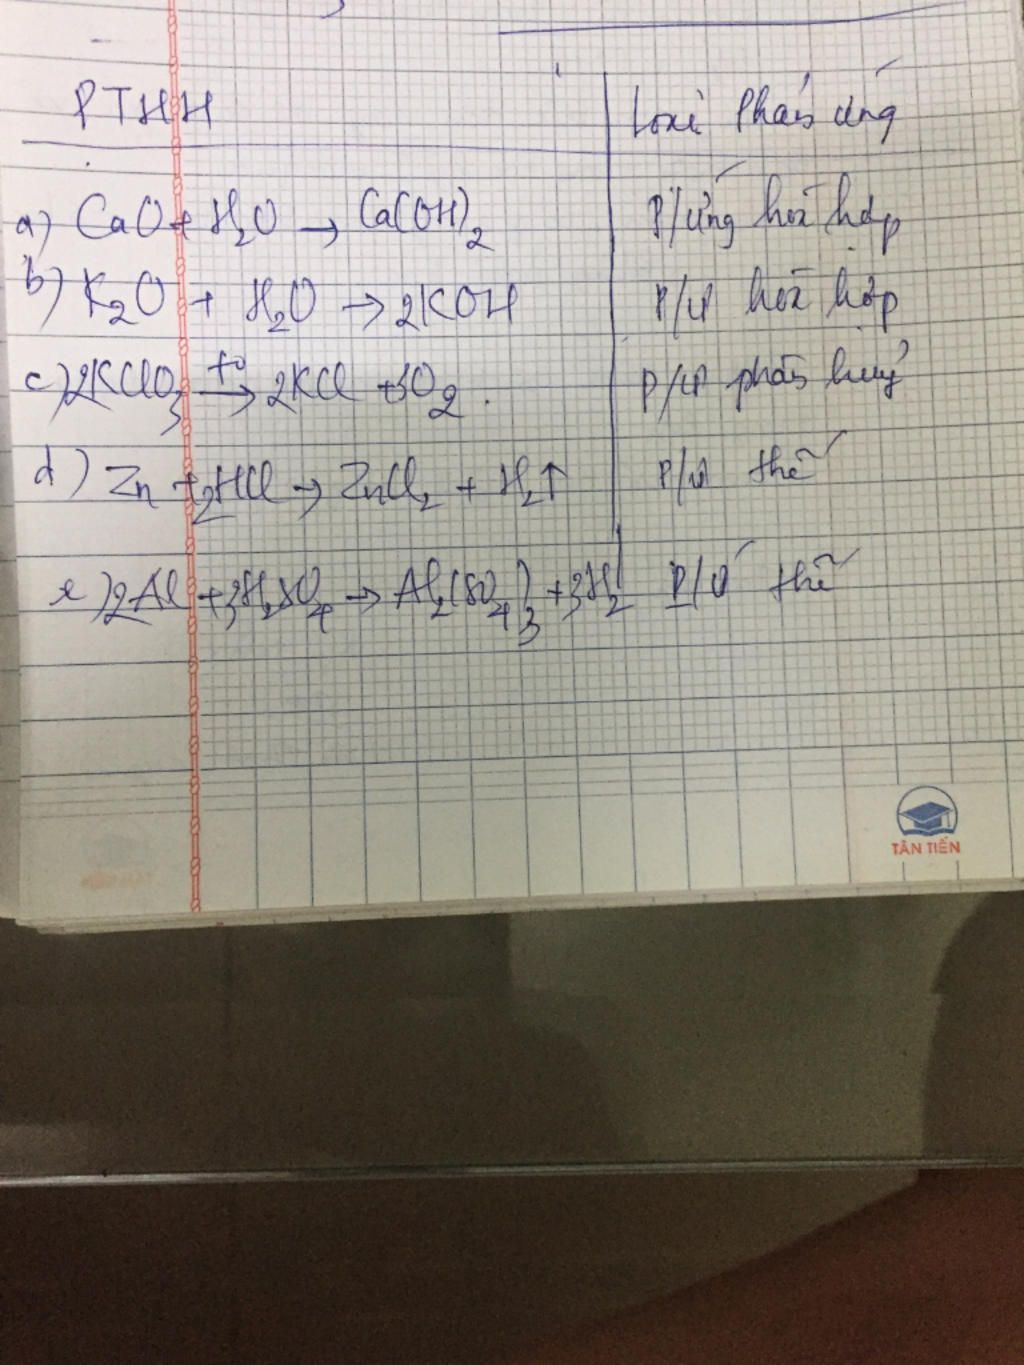 PTHH Loại Phản ứng
a) CaO + H₂O → Ca(OH)₂ P/ứng hoá hợp
b) K₂O + H₂O → 2KOH P/ứ hoá hợp
c) 2KClO₃ t° → 2KCl + 3O₂. P/ứ phân huỷ
d) Zn + 2HCl → ZnCl₂ + H₂↑ P/ứ thế
e) 2Al + 3H₂SO₄ → Al₂(SO₄)₃ + 3H₂ P/ứ thế
TÂN TIẾN